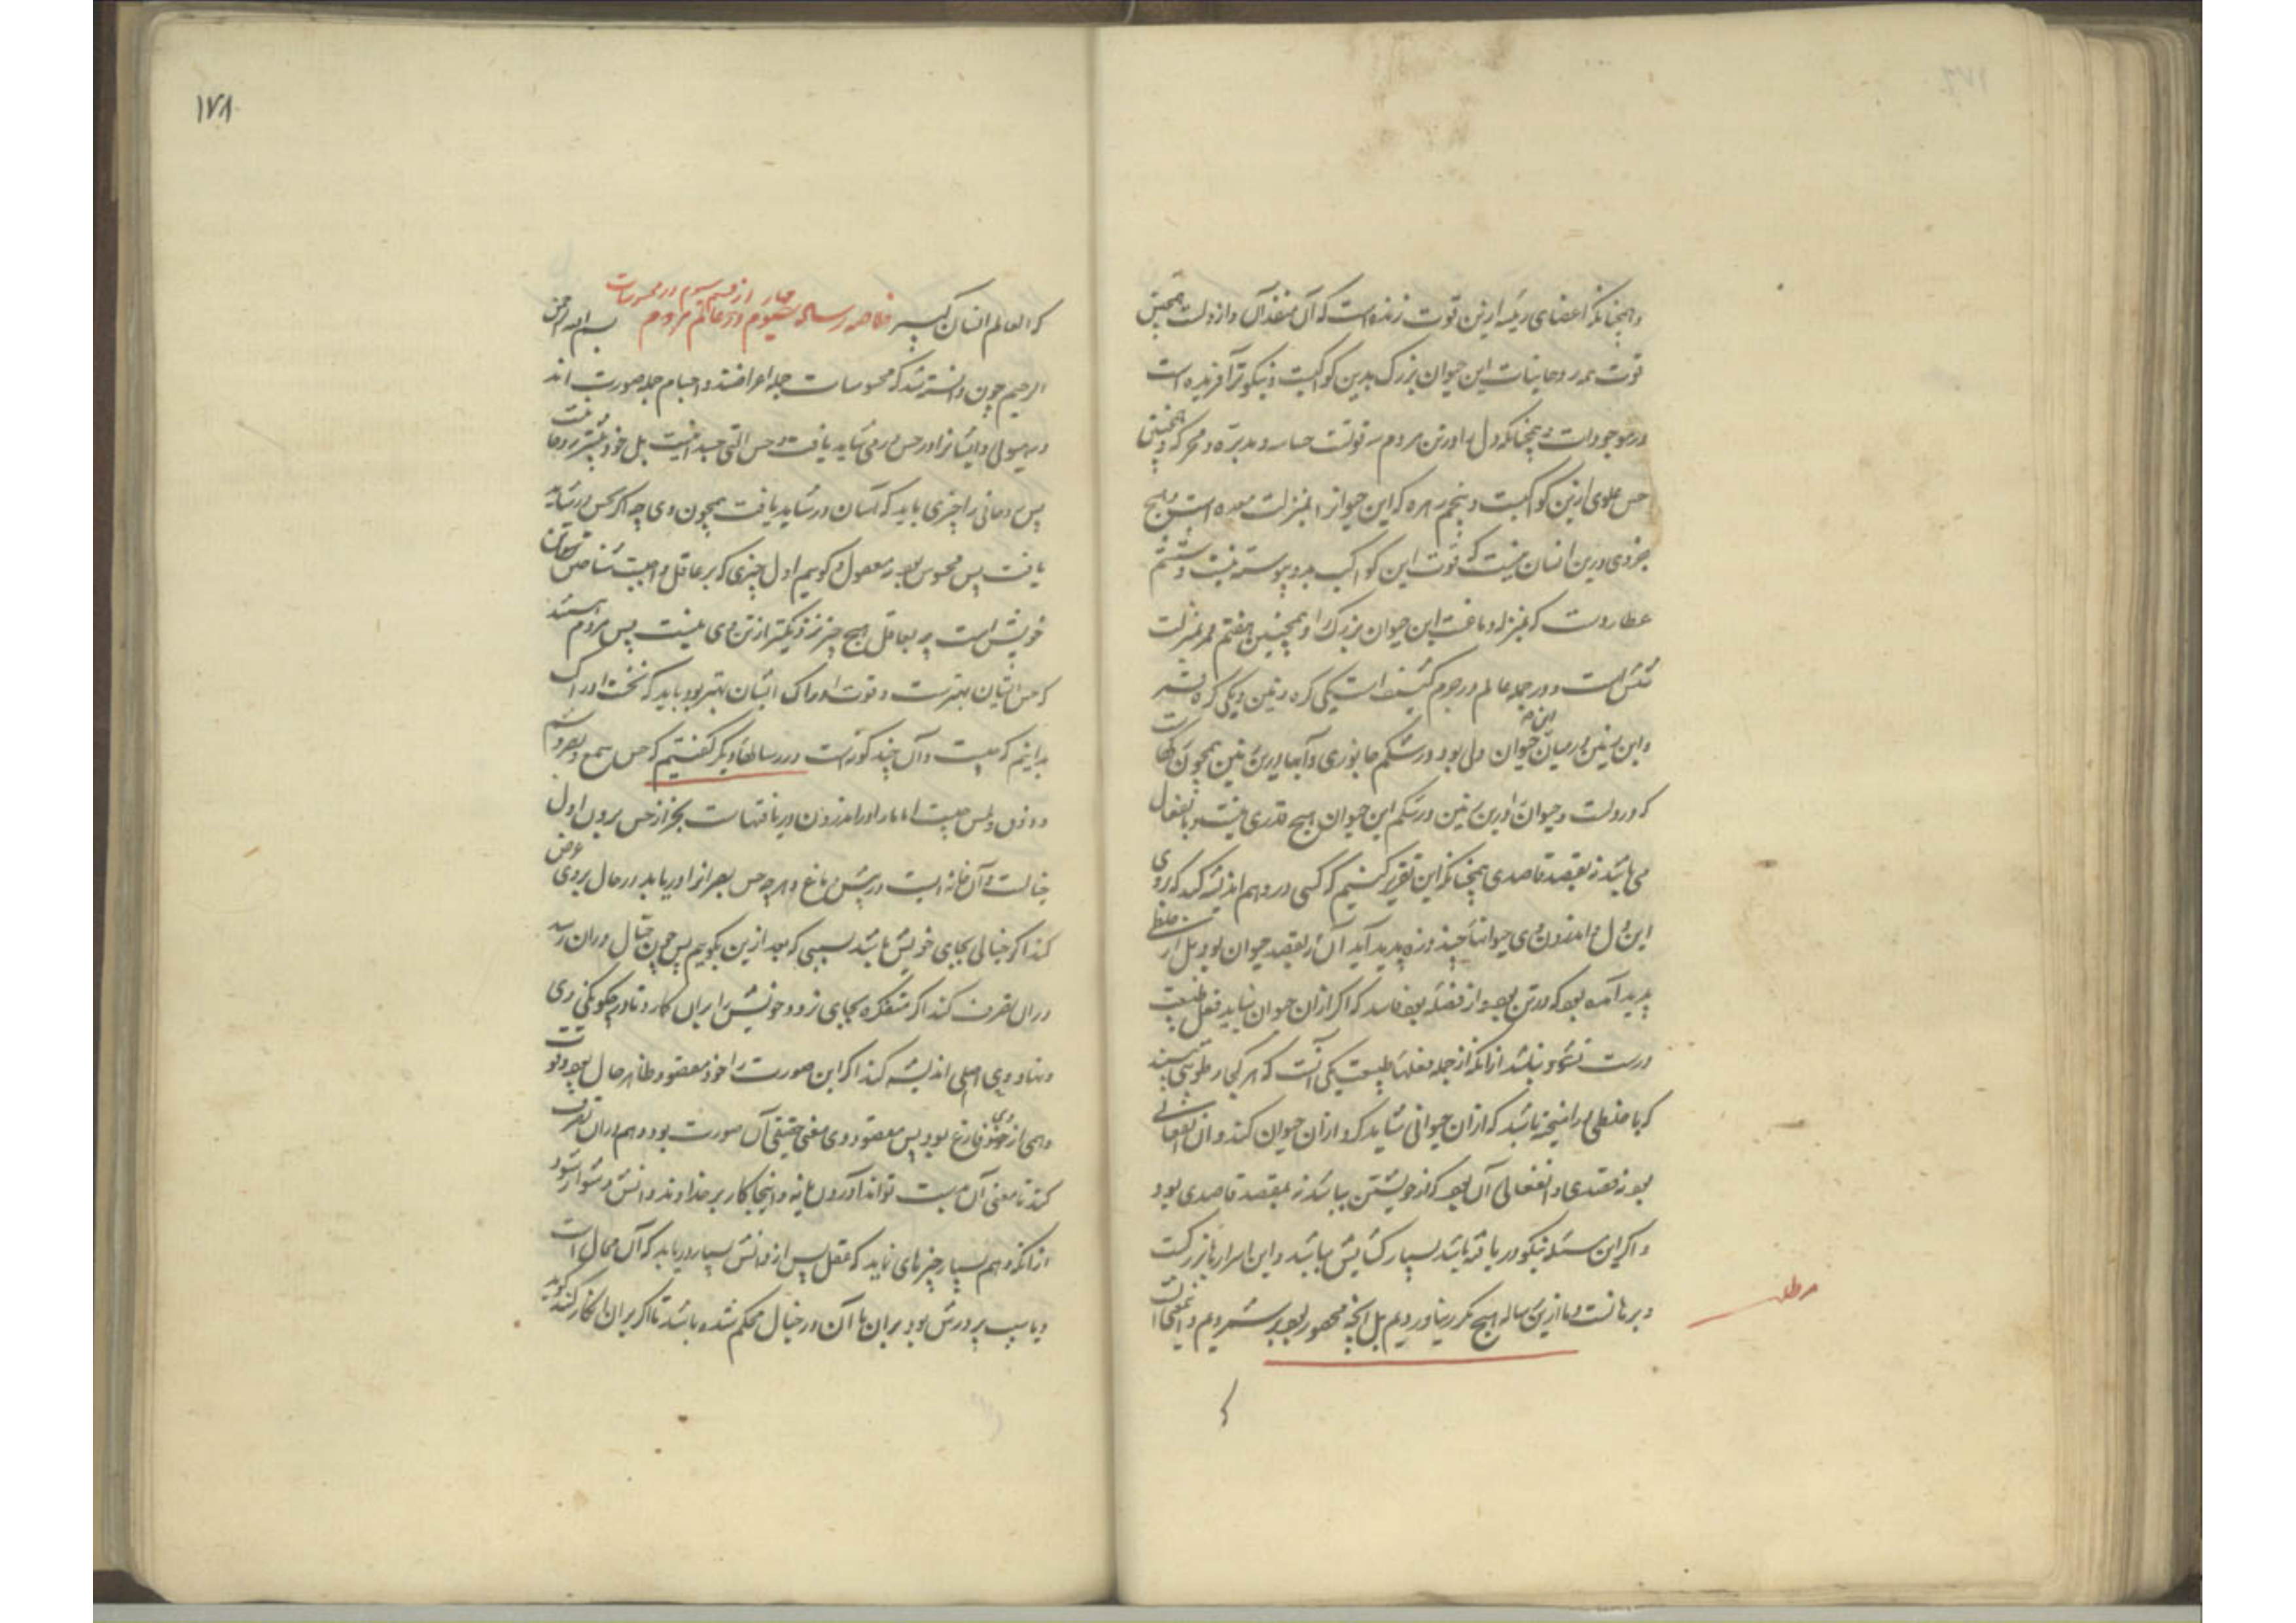 وهمچنانکه اعضای رئیسه ازین قوت زنده است که آن منفذ آن واز دلست همچنین
قوت همه روحانیات این حیوان بزرگ بدین کواکبست ونیکوتر آفریده است
درموجودات وهمچنانکه دل را در تن مردم سه قوتست حساسه ومدبره ومحرکه وهمچنین
حس علوی ازین کواکبست وپنجم زهره که این حیوان را بمنزلت معده است وهیچ
جزوی درین انسان نیست که قوت این کواکب بدو پیوسته نیست وششم
عطاردست که بمنزله دماغست این حیوان بزرگ را وهمچنین هفتم قمر بمنزلت
شش است ودر جمله عالم دو جرم کثیف است یکی کره زمین ویکی کره قمر
واین زمین درمیان این حیوان دلی بود درشکم جانوری وآبها درین زمین همچون رگهاست
که در دلست وحیوان درین زمین درشکم این حیوان هیچ قدری نیست وبانفعال
می باشد نه بقصد قاصدی همچنانکه این تقریر کنیم که کسی در وهم اندیشه کند که بر روی
این دل واندرون وی حیوانها چند ذره پدید آید آن نه بقصد حیوان بود بل از خلطی
پدید آمده بود که درتن بود از فضله بود فاسد که اگر ازان حیوان نیاید فعل طبیعت
درست نشود نباشد ازانکه از جمله فعلهاء طبیعت یکی آنست که هر کجا رطوبتی بیند
که با خلطی برآمیخته باشد که ازان حیوانی شاید کرد ازان حیوان کند وآن انفعالی
بود نه قصدی وانفعالی آن بود که از خویشتن بباشد نه بقصد قاصدی بود
واگر این مسئله نیکو دریافته باشد بسیار گشایش بباشد واین اسرارها بزرگست
وبرهانست وما ازین رساله هیچ مکرر نیاوردیم بل آنچه مقصود بود برشمردیم
مطلب
۱۷۸
که العالم انسان کبیر خلاصه رساله چهار از قسم سیوم در محسوسات عالم مردم بسم الله الرحمن
الرحیم چون دانسته شد که محسوسات جمله اعراضند واجسام جمله صورت اند
درهیولی وایشانرا در حس در می شاید یافت وحس التی جسدانیست بل خود بیشتر روحانیست
پس روحانی را چیزی باید که آسان در شاید یافت همچون وی چه اگر بحس درشاید
یافت پس محسوس بود نه معقول وگویم اول چیزی که بر عاقل واجبست شناختن تن
خویش است چه بعاقل هیچ چیز نزدیکتر از تن وی نیست پس مردم
که حس ایشان بهترست وقوت ادراک ایشان بهتر بود باید که نخست ادراک
بدانیم که چیست وآن چند گونه است در رسالهاء دیگر گفتیم که حس سمع وبصر وشم
وذوق ولمس چیست اما مارا در اندرون دریافتهاست بجز از حس برون اول
خیالست وآن خانه است در پیش دماغ وهرچه حس بصر انرا دریابد در حال بروی عرض
کند اگر خیالی بجای خویش باشد بسببی که بعد ازین بگویم پس چون خیال دران رسد
دران تصرف کند اگر متفکره بجای نرود وخویشتن را بران گمارد تا در چگونگی وی
ونهاد وی اصلی اندیشه کند اگر این صورت را خود مقصود ظاهر حال بود وقوت
وهمی ازخود فارغ بود پس مقصود وی معنی حقیقی آن صورت بود وهم دران تصرف
کند تا معنی آن بدست تواند آوردن یا نه واینجا کار بر خداوند دانش دشوار شود
ازانکه وهم بسیار چیزهای نماید که عقل پس از دانش بسیار دریابد که آن محال است
ویا سبب پرورش بود بران یا آن در خیال محکم شده باشد تا اگر بران انکار کند گوید